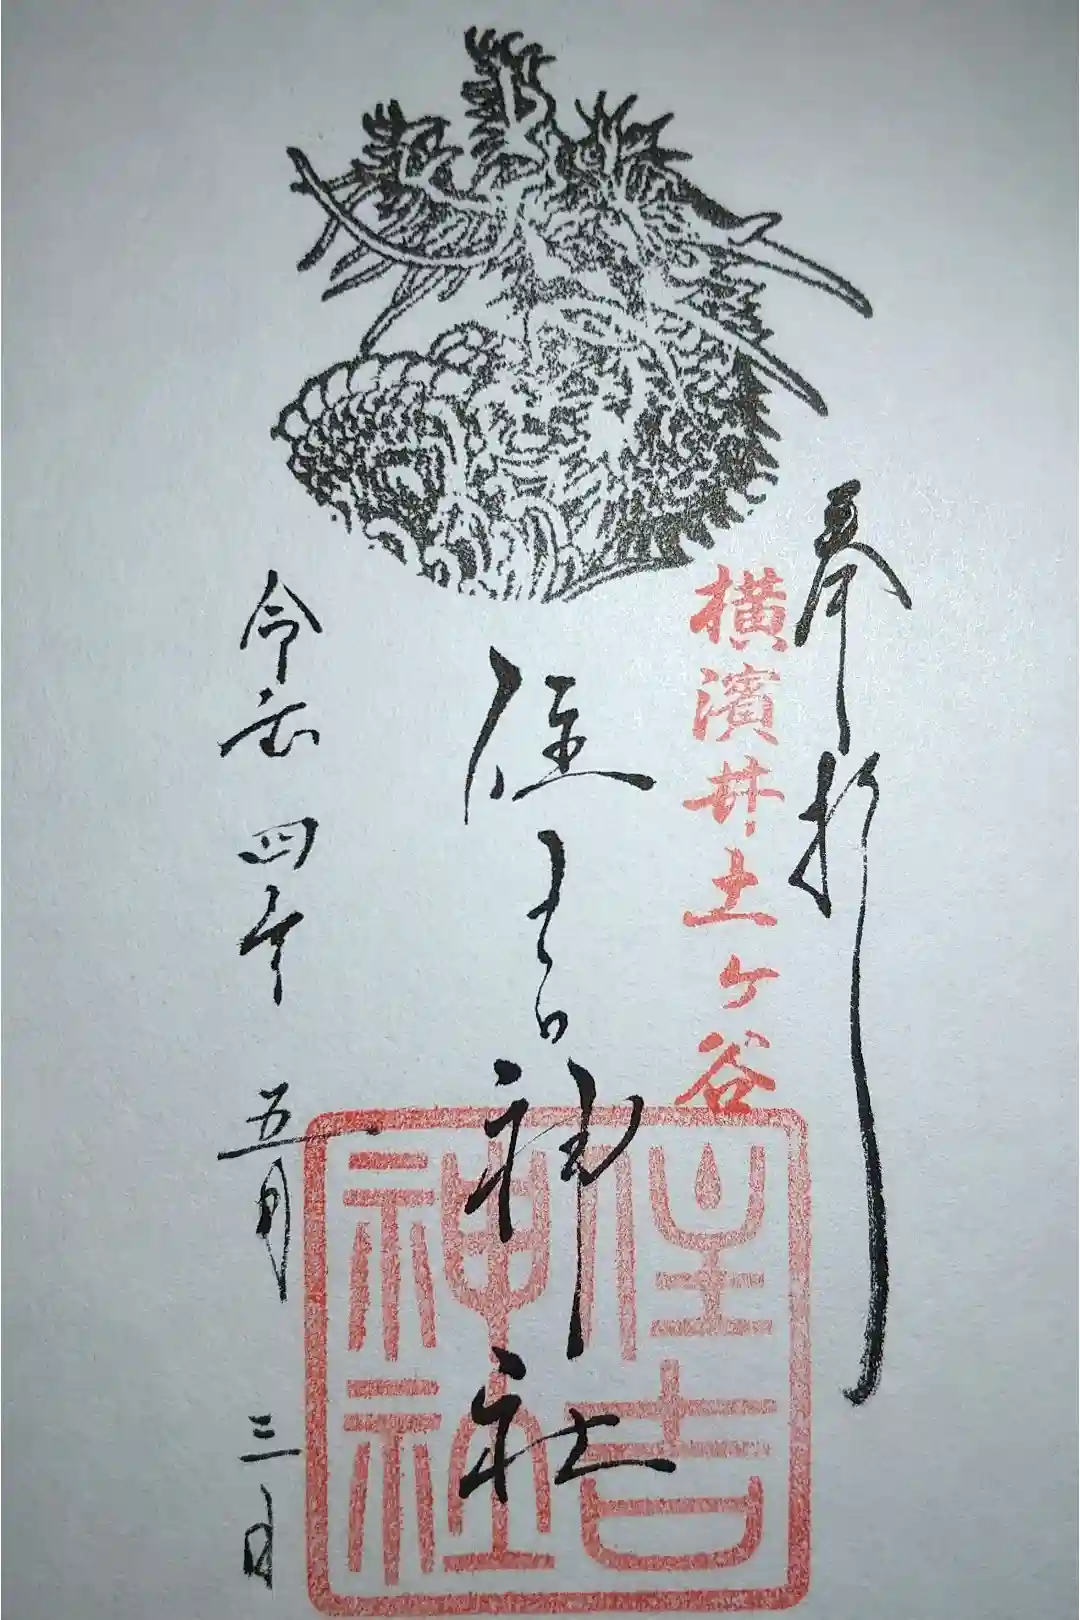 奉拝
横濱井土ヶ谷
住吉神社
住吉神社
令和四年五月三日